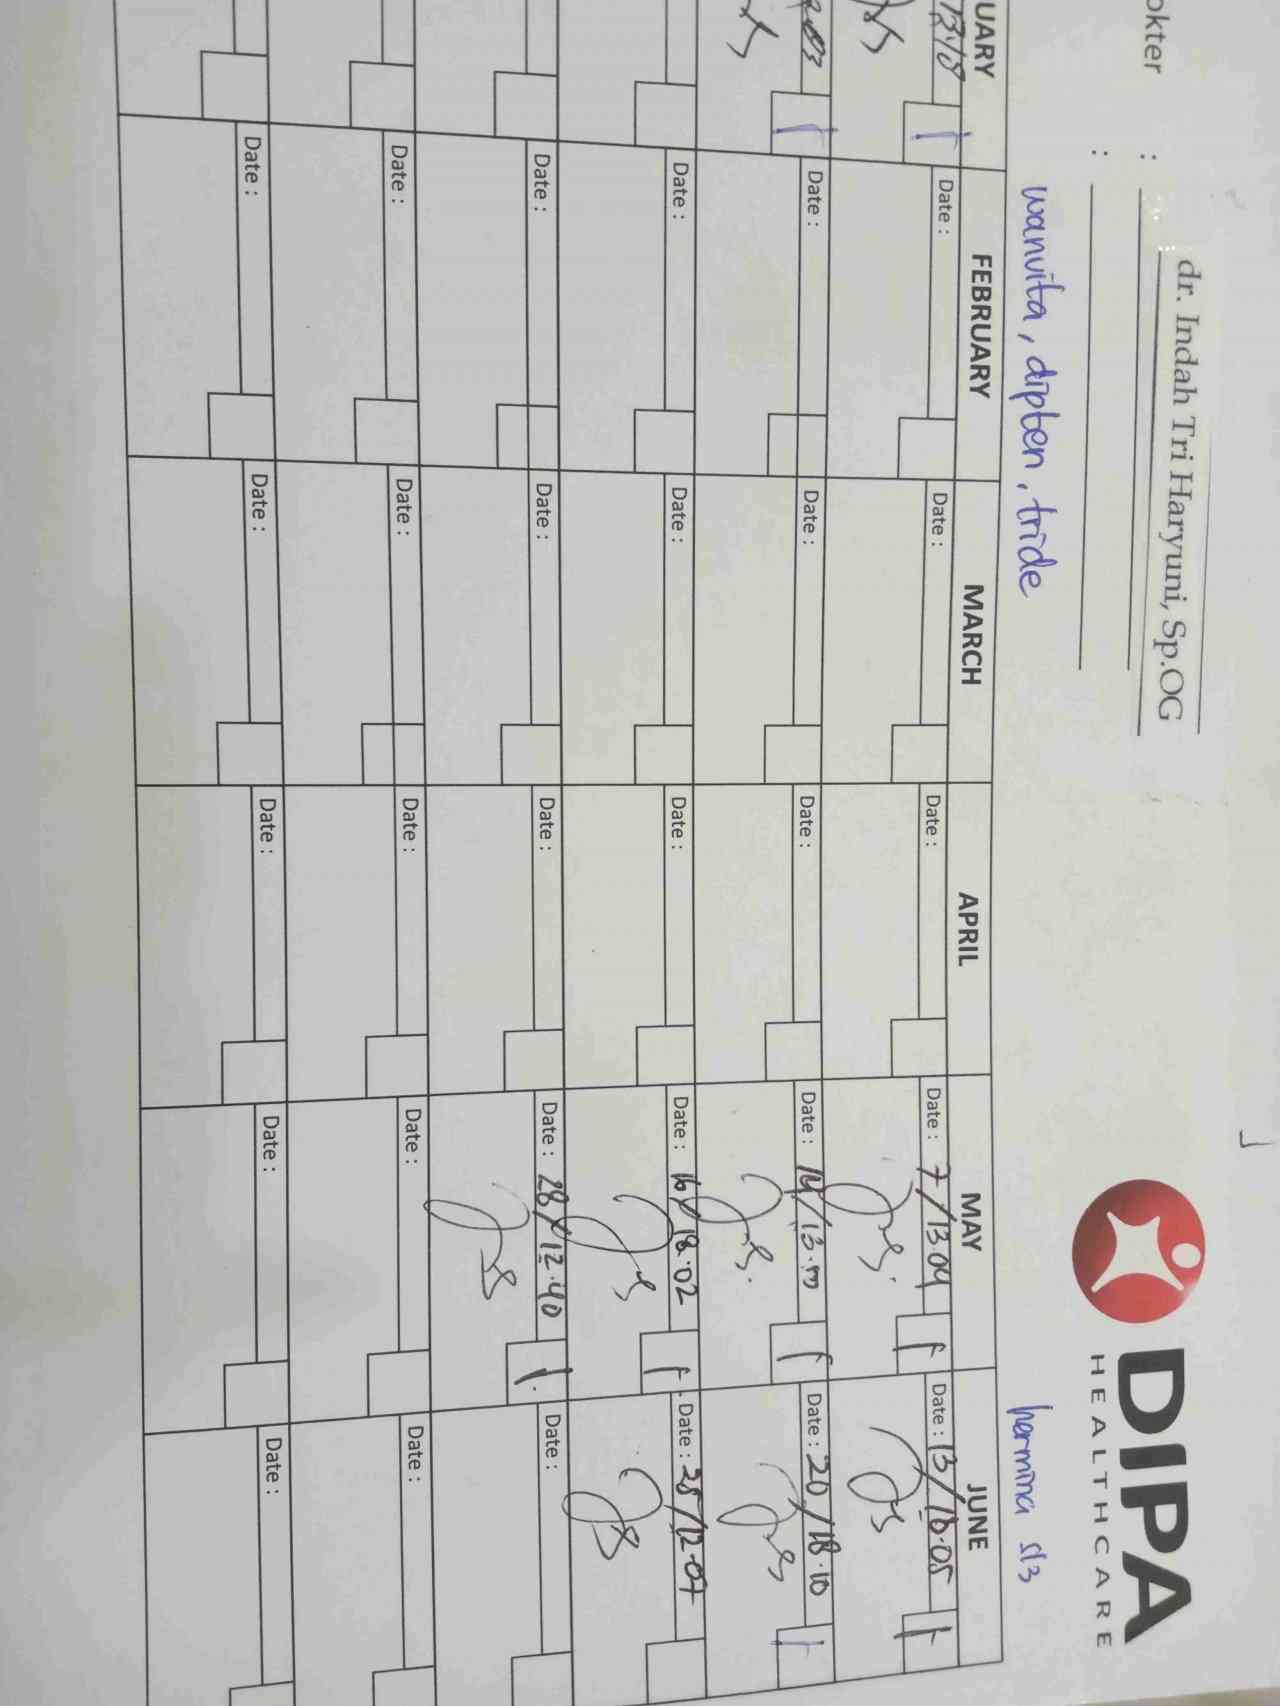 DIPA
HEALTHCARE
okter : dr. Indah Tri Haryuni, Sp.OG
:
wanvita, dipten, tride hermina s/3
UARY FEBRUARY MARCH APRIL MAY JUNE
13.18 Date : Date : Date : Date : 7/13.04 Date : 13/18.05
Date : Date : Date : Date : 14/13. Date : 20/18.10
Date : Date : Date : Date : 16/18.02 Date : 25/12.07
Date : Date : Date : Date : 28/12.40 Date :
Date : Date : Date : Date : Date :
Date : Date : Date : Date : Date :